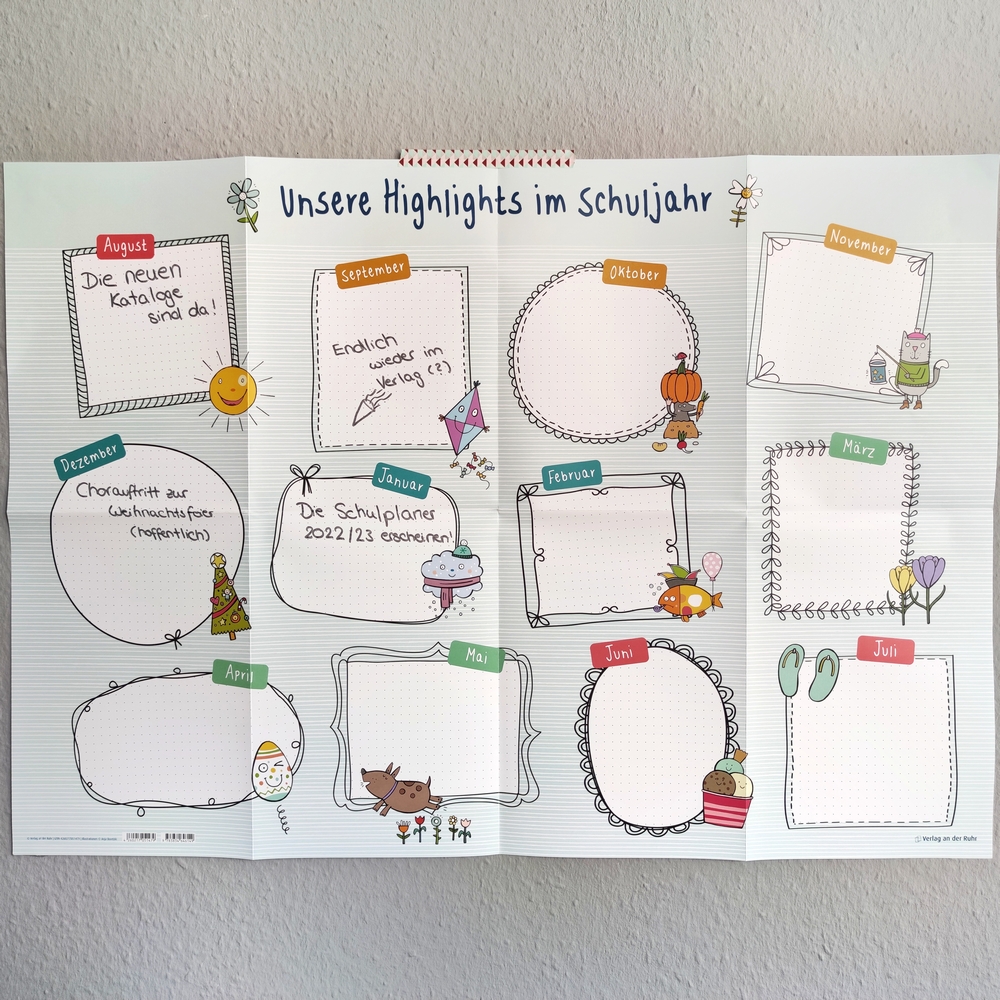 Unsere Highlights im Schuljahr
August
Die neuen
Kataloge
sind da!
September
Endlich
wieder im
Verlag (?)
Oktober
November
Dezember
Chorauftritt zur
Weihnachtsfeier
(hoffentlich)
Januar
Die Schulplaner
2022/23 erscheinen!
Februar
März
April
Mai
Juni
Juli
Verlag an der Ruhr